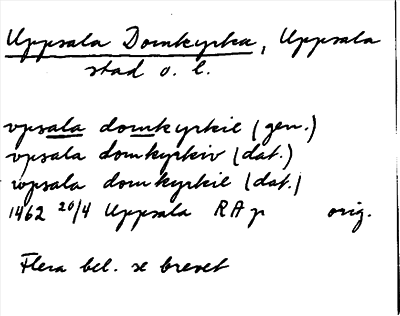 Uppsala Domkyrka, Uppsala
stad o. l.
vpsala domkyrkie (gen.)
vpsala domkyrkiv (dat.)
wpsala domkyrkie (dat.)
1462 20/4 Uppsala RAp orig.
Flera bel. se brevet